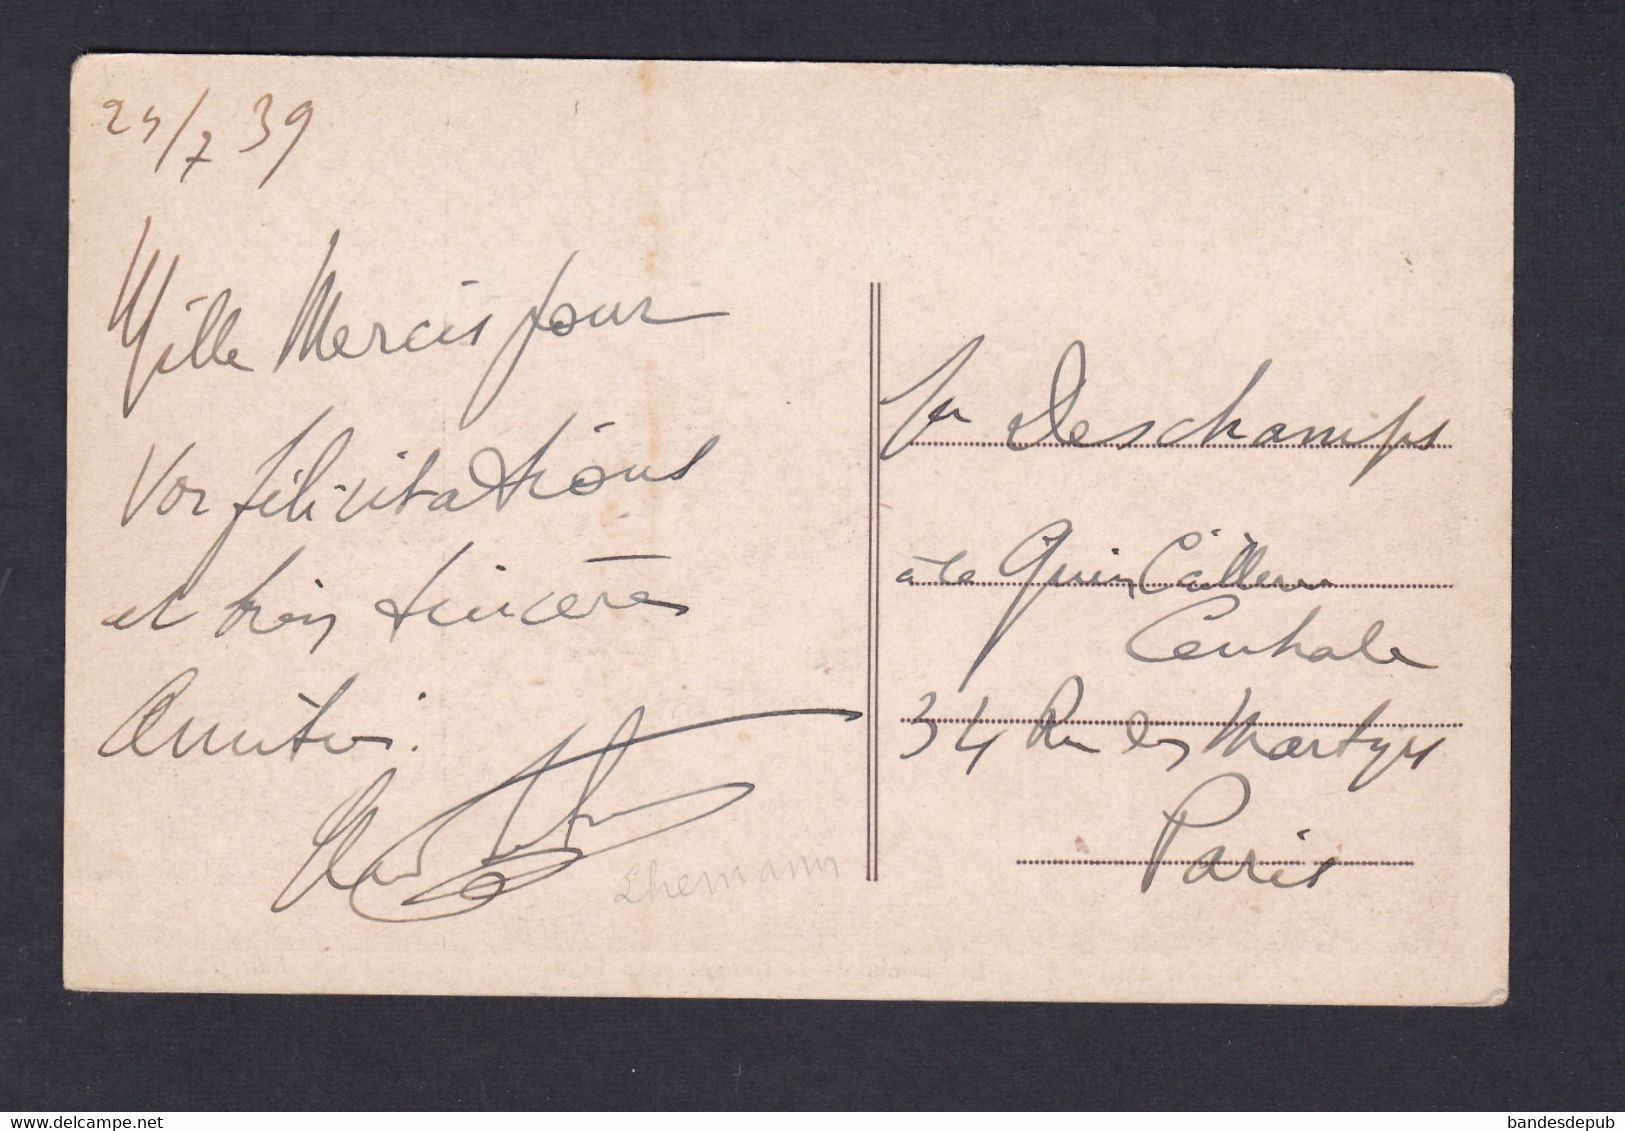 24/7 39
Mille Mercis pour
Vos félicitations
et bien sincères
Amitiés.
Lhemann
Mr Deschamps
à la Quincaillerie
Centrale
34 Rue des Martyrs
Paris
bandesdepub